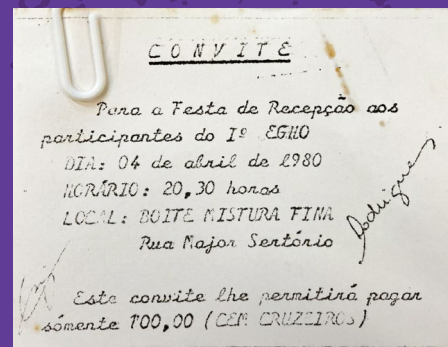 CONVITE
Para a Festa de Recepção aos
participantes do Iº EGHO
DIA: 04 de abril de 1980
HORÁRIO: 20,30 horas
LOCAL: BOITE MISTURA FINA
Rua Major Sertório
Rodrigues
Este convite lhe permitirá pagar
sómente 100,00 (CEM CRUZEIROS)